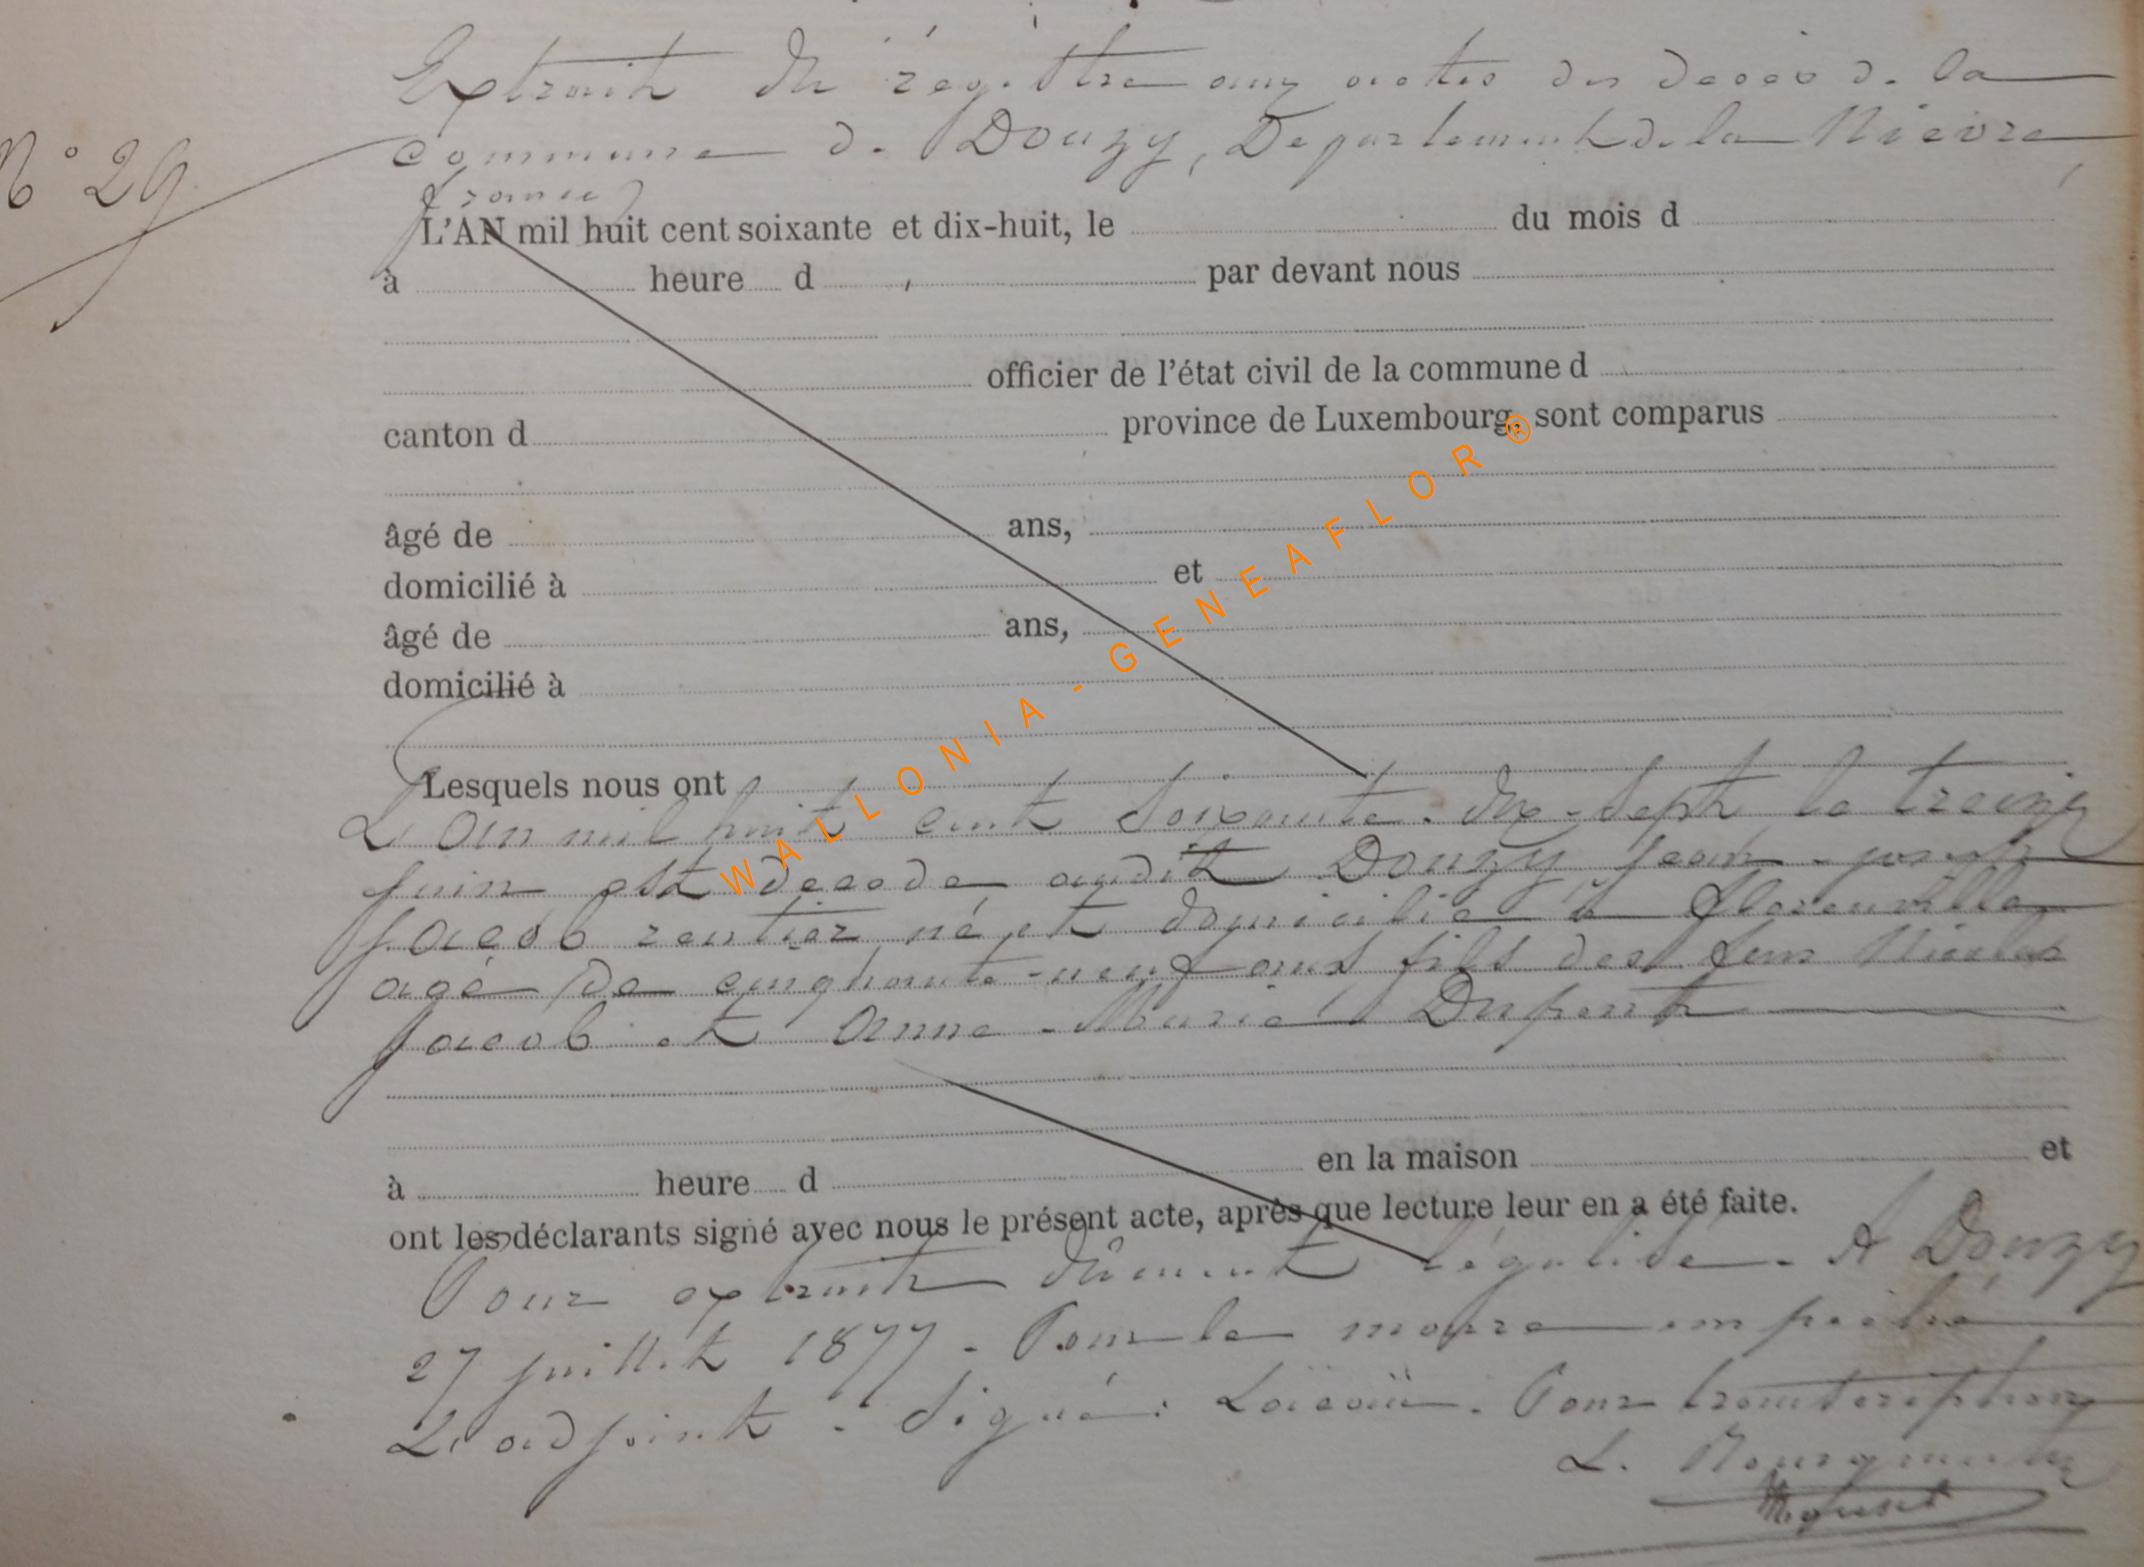 Extrait du régistre aux actes des décès de la
N° 29
commune de Douzy, Departement de la Nièvre,
france)
L'AN mil huit cent soixante et dix-huit, le du mois d
à heure d par devant nous
officier de l'état civil de la commune d
canton d province de Luxembourg, sont comparus
âgé de ans,
domicilié à et
âgé de ans,
domicilié à
WALLONIA - GENEAFLOR ®
Lesquels nous ont
L'an mil huit cent soixante-dix-sept le treize
juin est décédé audit Douzy Jean-joseph
Jacob rentier, né et domicilié à Florenville
agé de cinquante-neuf ans fils des feus Nicolas
Jacob et Anne-Marie Dupont
à heure d en la maison et
ont les déclarants signé avec nous le présent acte, après que lecture leur en a été faite.
Pour extrait dûment légalisé. A Douzy
27 juillet 1877. Pour le maire empêché
L'adjoint. Signé: Pour transcription
L. Bourgmestre